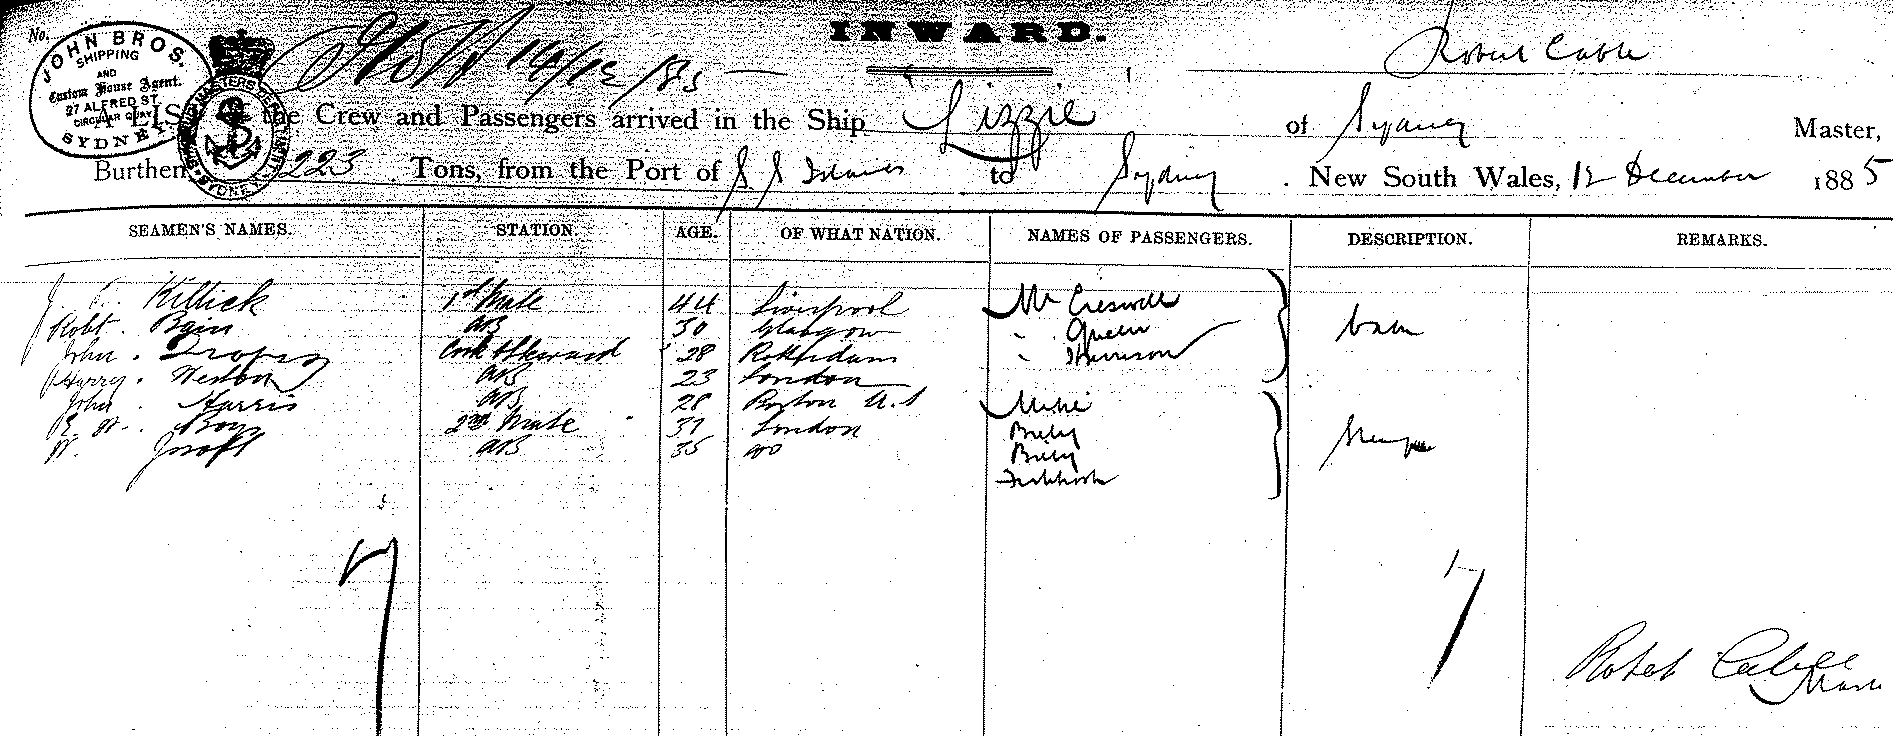 INWARD.
No.
JOHN BROS.
SHIPPING
AND
Custom House Agent.
27 ALFRED ST.
CIRCULAR QUAY
SYDNEY
19/12/85
Robert Cable
A LIST of the Crew and Passengers arrived in the Ship Lizzie of Sydney Master,
Burthen 223 Tons, from the Port of S S Islands to Sydney . New South Wales, 12 December 1885
SEAMEN'S NAMES. STATION. AGE. OF WHAT NATION. NAMES OF PASSENGERS. DESCRIPTION. REMARKS.
Killick 1st Mate 44 Liverpool Mr Creswell
Robt. Bain AB 30 Glasgow " Queen Cabin
John . Cook & Steward 28 Rotterdam " Harrison
Harry . Weston AB 23 London
John . Harris AB 28 Boston U.S Mike
E. W. 2nd Mate 37 London Billy
W. AB 35 do Billy
7 7
Robert Cable